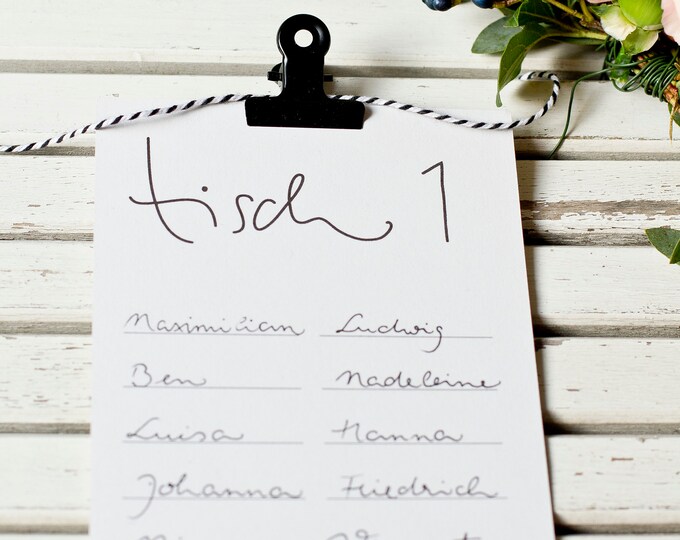 tisch 1
Maximilian Ludwig
Ben Madeleine
Luisa Hanna
Johanna Friedrich